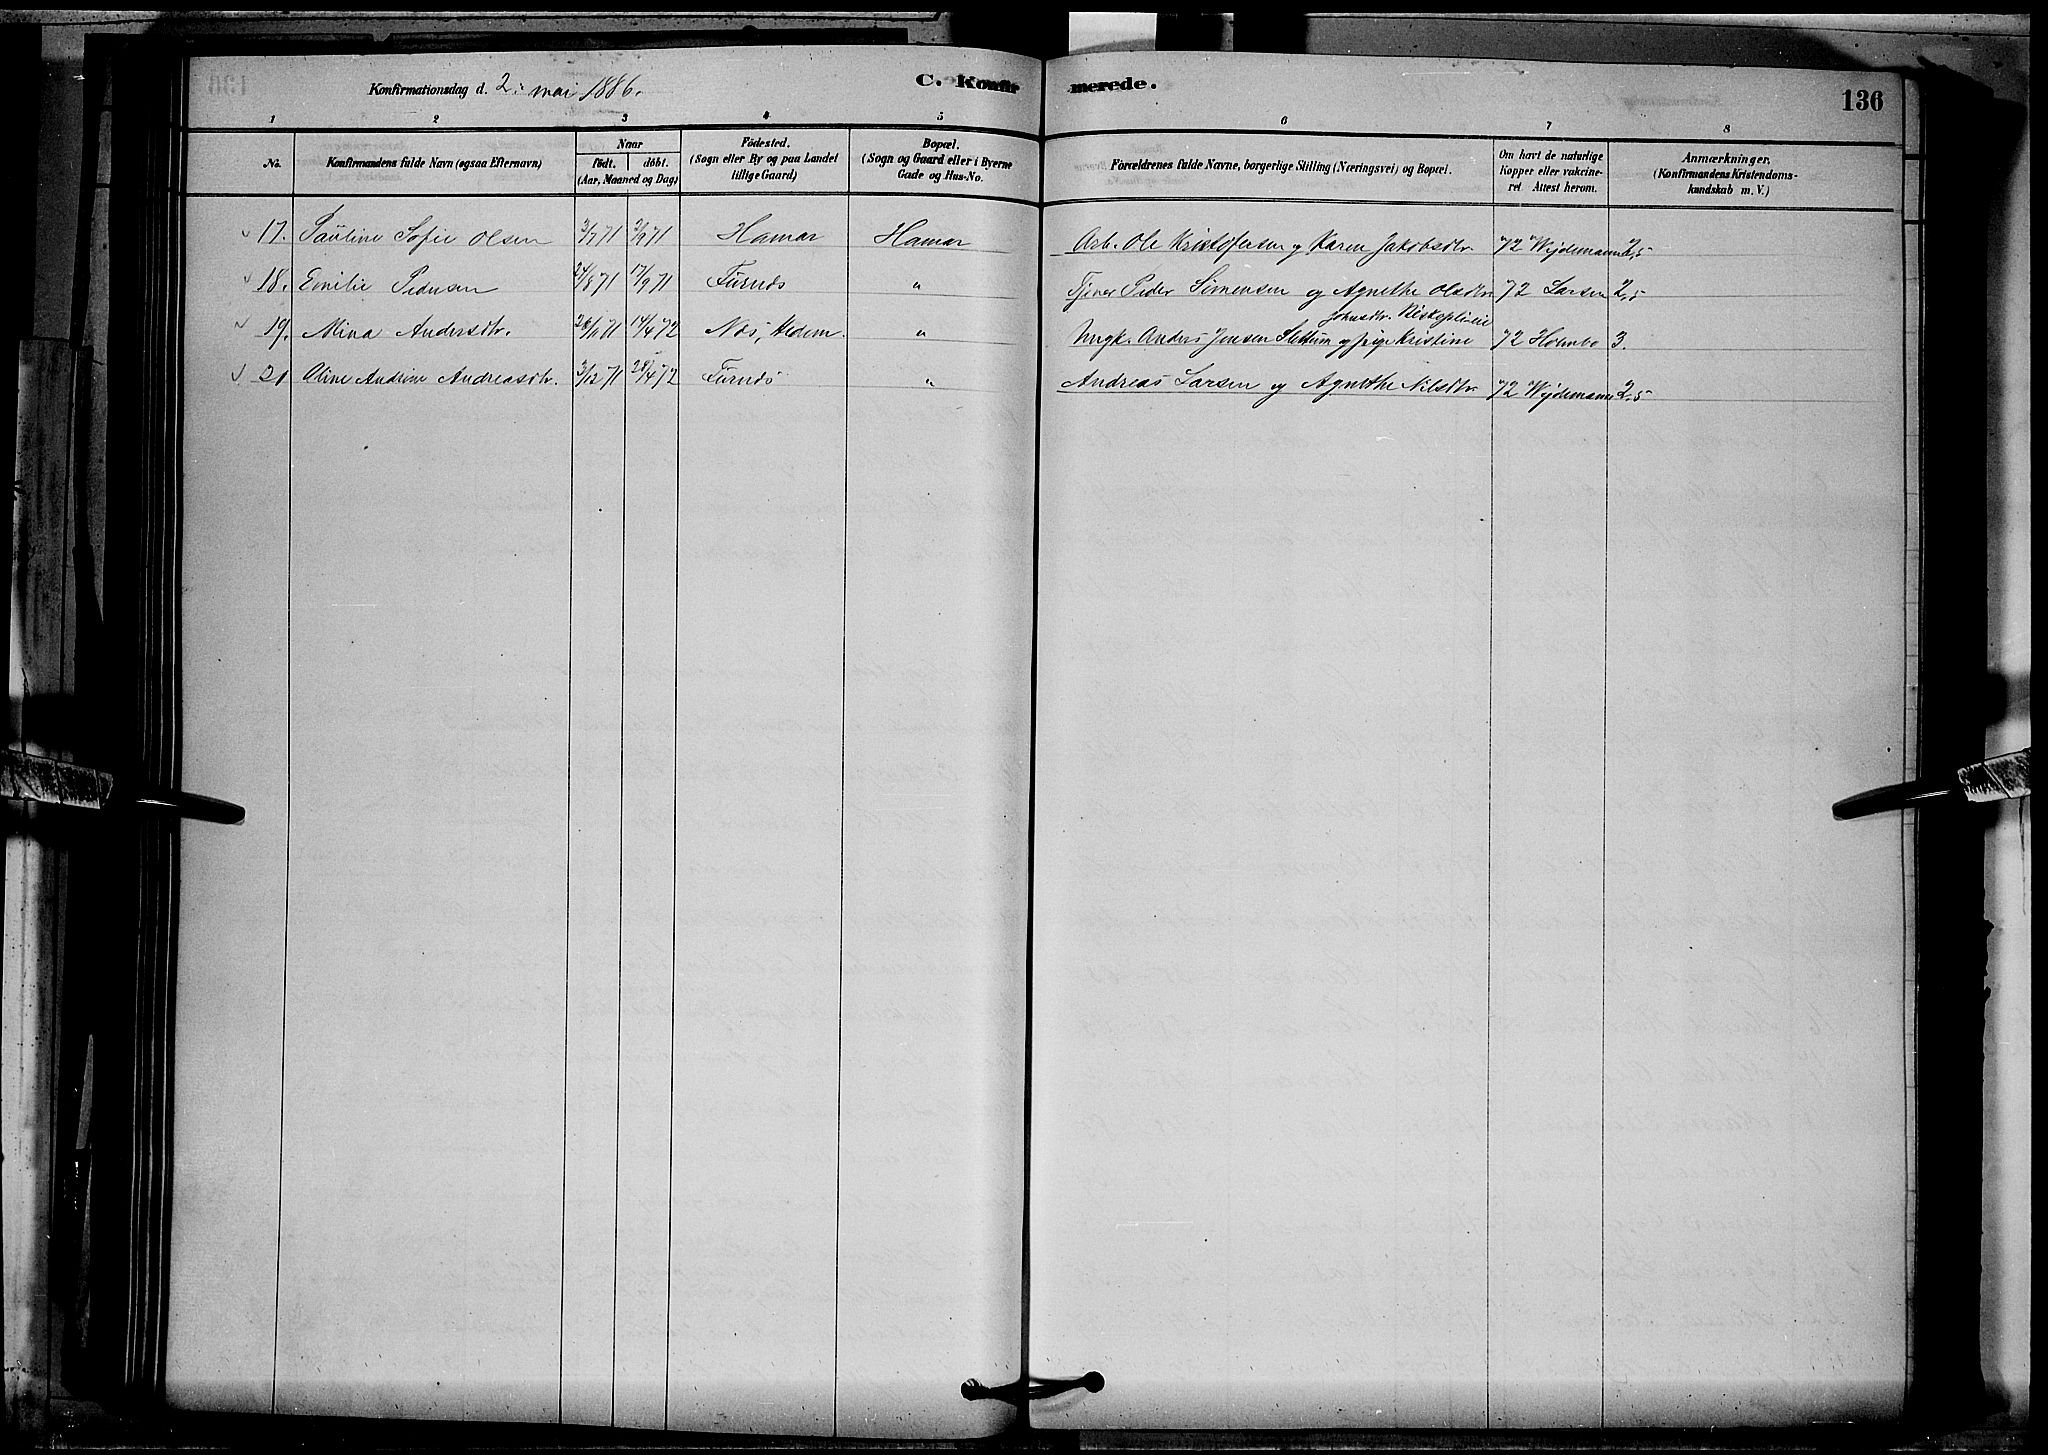 Konfirmationsdag d. 2. mai 1886. C. Konfirmerede. 136
1 2 3 4 5 6 7 8
No. Konfirmandens fulde Navn (ogsaa Efternavn) Naar født. døbt. (Aar, Maaned og Dag) Fødested. (Sogn eller By og paa Landet tillige Gaard) Bopæl. (Sogn og Gaard eller i Byerne Gade og Hus-No. Forældrenes fulde Navne, borgerlige Stilling (Næringsvei) og Bopæl. Om havt de naturlige Kopper eller vakcineret. Attest herom. Anmærkninger, (Konfirmandens Kristendomskundskab m. V.)
17. Pauline Sofie Olsen 3/7 71 3/9 71 Hamar Hamar Arb. Ole Kristofersen og Karen Jakobsdtr. 72 Wejdemann 2,5
18. Emilie Pedersen 24/8 71 17/9 71 Furnes " Tjener Peder Simensen og Agnethe Olsdtr 72 Larsen 2,5
19. Mina Andersdtr. 28/11 71 14/4 72 Nes, Hedem. " Ungk. Anders Jensen Slettum og pige Kristine Johnsdtr. 72 Holmbo 3.
20 Oline Andrine Andreasdtr. 3/12 71 28/4 72 Furnes " Andreas Larsen og Agnethe Nilsdtr 72 Wejdemann 2,5